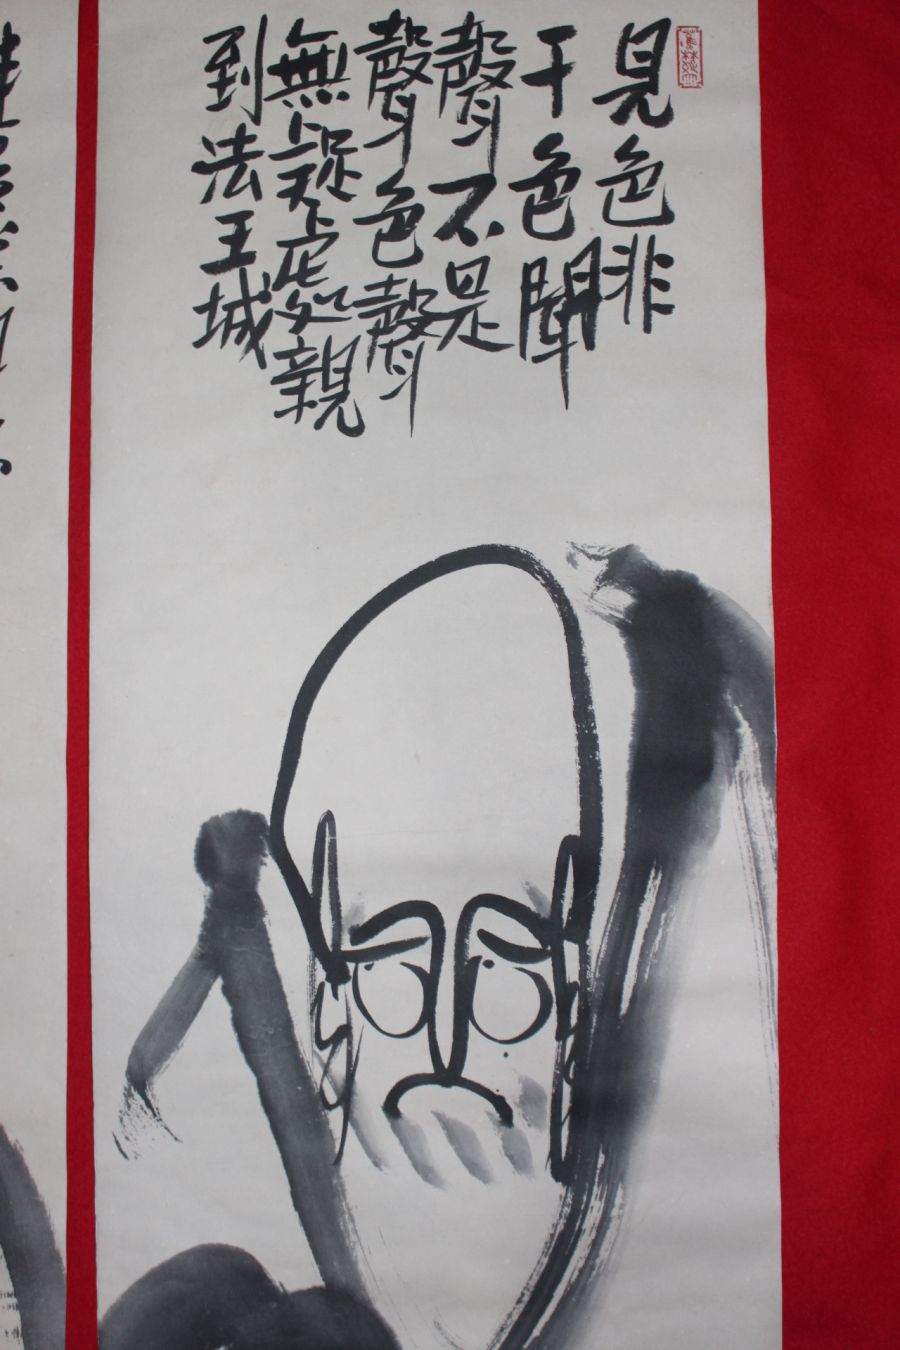 見色非
干色聞
聲不是
聲色聲
無礙處親
到法王城